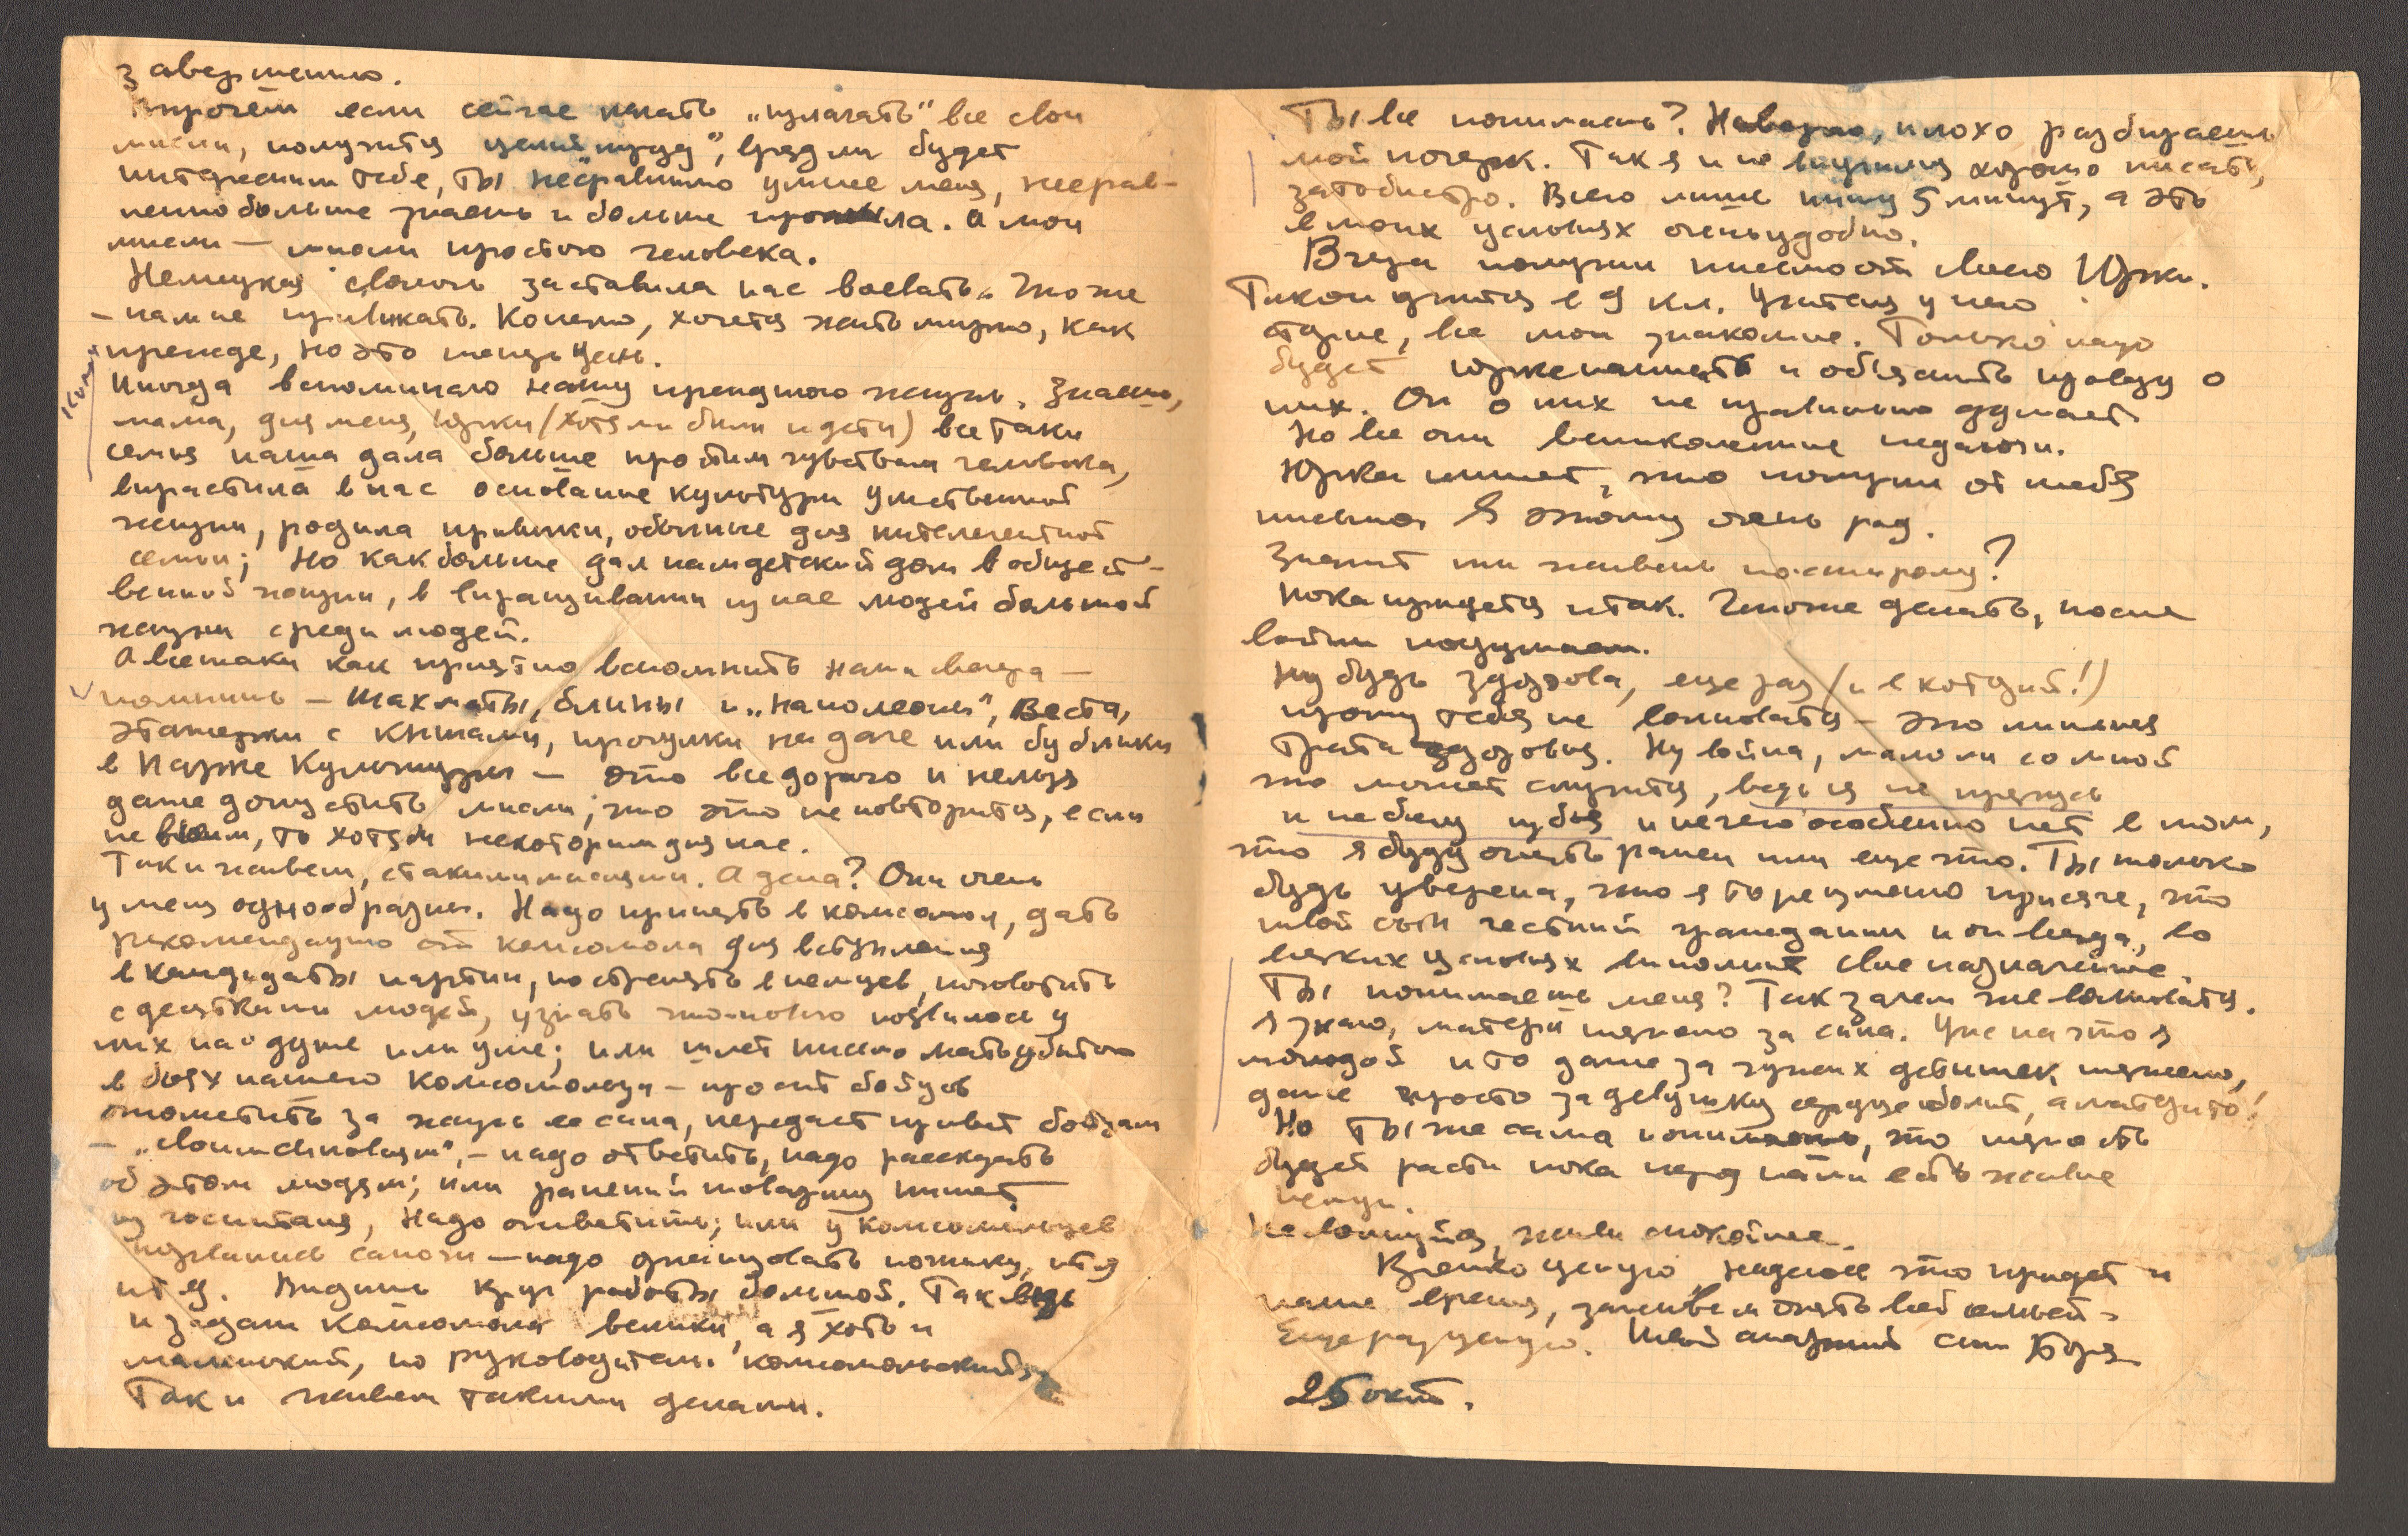 завершенно.
Впрочем если сейчас начать „излагать" все свои
мысли, получится целый труд, врядли будет
интересным тебе, ты несравнимо умнее меня, несрав-
ненно больше знаешь и больше прожила. А мои
мысли — мысли простого человека.
Немецкая сволочь заставила нас воевать. Что же
— нам не привыкать. Конечно, хочется жить мирно, как
прежде, но это теперь цель.
Иногда вспоминаю нашу прежнюю жизнь. Знаешь,
мама, для меня, Юрки (хотя мы были и дети) все таки
семья наша дала больше простым чувствам человека,
вырастила в нас основание культуры умственной
жизни, родила привычки, обычные для интелегентной
семьи; Но как больше дал нам детский дом в общест-
венной жизни, в выращивании из нас людей большой
жизни среди людей.
А все таки как приятно вспомнить наши вечера —
помнишь — шахматы, блины и „наполеоны", Веста,
этажерки с книгами, прогулки на даче или бублики
в Парке Культуры — это все дорого и нельзя
даже допустить мысли, что это не повторится, если
не всем, то хотя бы некоторым для нас.
Так и живем, с такими мыслями. А дела? Они очень
у меня однообразны. Надо принять в комсомол, дать
рекомендацию от комсомола для вступления
в кандидаты партии, пострелять в немцев, поговорить
с десятками людей, узнать что-нового появилось у
них на душе или уме; или шлет письмо мать убитого
в боях нашего комсомольца — просит бойцов
отомстить за жизнь ее сына, передает привет бойцам
— „своим сыновьям", — надо ответить, надо рассказать
об этом людям; или раненый товарищ пишет
из госпиталя, надо ответить; или у комсомольцев
порвались сапоги — надо организовать починку, и т.д
и т.д. Видишь круг работы большой. Так ведь
и задачи комсомола велики, а я хоть и
маленький, но руководитель комсомольский.
Так и живем такими делами.
Ты все понимаешь? Наверно, плохо разбираешь
мой почерк. Так я и не выучился хорошо писать,
зато быстро. Всего лишь пишу 5 минут, а это
в моих условиях очень удобно.
Вчера получил письмо от своего Юрки.
Такой учится в 9 кл. Учителя у него
старые, все мои знакомые. Только надо
будет Юрке написать и объяснить правду о
них. Он о них не правильно думает.
Но все они великолепные педагоги.
Юрка пишет, что получил от тебя
письмо. Я этому очень рад.
Значит ты живешь по-старому?
Пока придется и так. Что же делать, после
войны подумаем.
Ну будь здорова, еще раз (и в который!)
прошу тебя не волноваться — это лишняя
трата здоровья. Ну война, мало ли со мной
что может случится, ведь я не прячусь
и не бегу из боя и нечего особенного нет в том,
что я буду опять ранен или еще что. Ты только
будь уверена, что я то не изменю присяге, что
твой сын честный гражданин и он всегда, во
всяких условиях выполнит свое назначение.
Ты понимаешь меня? Так зачем же волноваться.
Я знаю, матери тяжело за сына. Уж на что я
молодой и то даже за чужих детишек тяжело,
даже просто за девушку сердце болит, а матери то!
Но ты же сама понимаешь, что тяжесть
будет расти пока перед нами есть живые
немцы.
Не волнуйся, живи спокойнее.
Крепко целую, надеюсь что придет и
наше время, заживем опять всей семьей.
Еще раз целую. Твой старший сын Боря
25 окт.